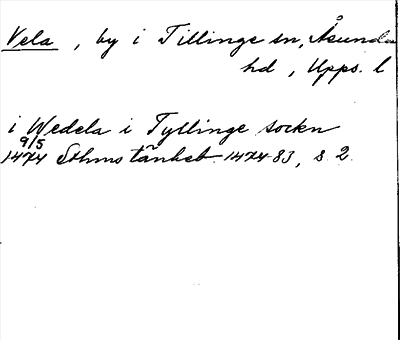 Vela, by i Tillinge sn, Åsunda
hd, Upps. l
i Wedela i Tyllinge sockn
9/5
1474 Sthms tänkeb. 1474-83, s 2.